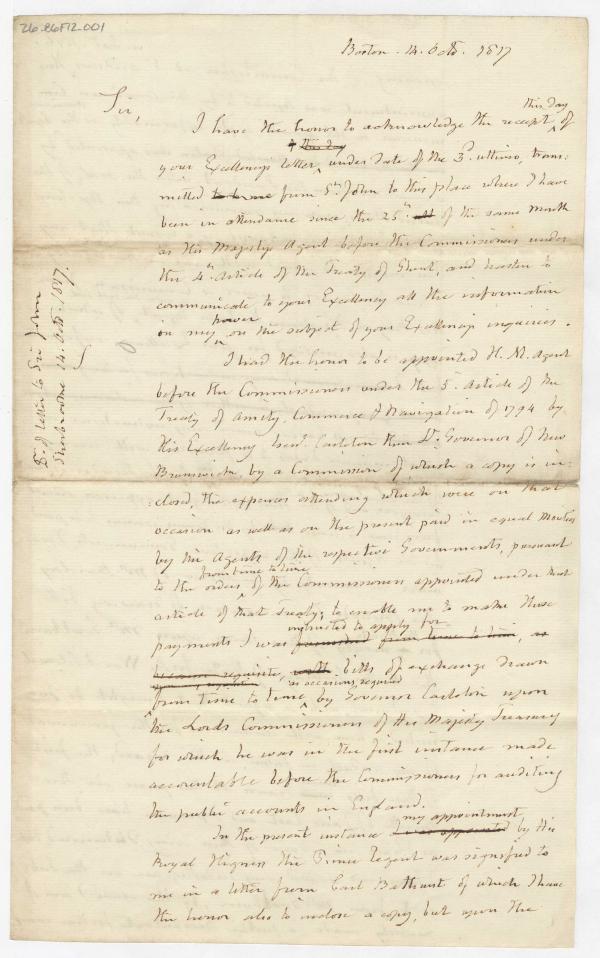 26.86F12.001
Boston 14. Octr. 1817
Sir,
this day
I have the honor to acknowledge the receipt ^ of
this day
your Excellency's letter, under date of the 3d. ultimo, trans:
mitted to to me from St. John to this place where I have
been in attendance since the 25th of the same month
as His Majesty's Agent before the Commissioners under
the 4th. Article of the Treaty of Ghent, and hasten to
communicate to your Excellency all the information
power
in my ^ on the subject of your Excellency's inquiries.
I had the honor to be appointed H. M. Agent
before the Commissioners under the 5. Article of the
Treaty of Amity, Commerce & Navigation of 1794 by
His Excellency Genl. Carleton then Lt. Governor of New
Brunswick, by a Commission of which a copy is in:
:closed, the expences attending which were on that
occasion as well as on the present paid in equal moities
by the Agents of the respective Governments, pursuant
from time to time
to the orders ^ of the Commissioners appointed under that
article of that Treaty; to enable me to make these
instructed to apply for
payments I was furnished from time to time, as
became requisite, with bills of exchange drawn
as occasion required
from time to time ^ by Governor Carleton upon
the Lords Commissioners of His Majesty's Treasury
for which he was in the first instance made
accountable before the Commissioners for auditing
the public accounts in England.
my appointment
In the present instance I was appointed by His
Royal Highness the Prince Regent was signified to
me in a letter from Earl Bathurst of which I have
the honor also to inclose a copy, but upon the
Dt. of letter to Sir John
Sherbrooke 14. Octr. 1817.